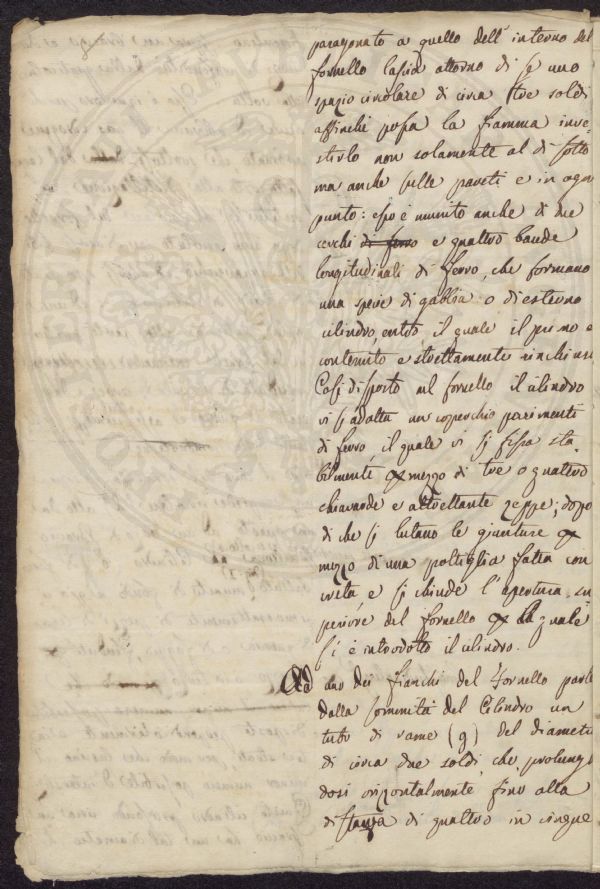 paragonato a quello dell'interno del
fornello lascia attorno di se uno
spazio circolare di circa tre soldi
affinchè possa la fiamma inve-
stirlo non solamente al di sotto
ma anche sulle pareti e in ogni
punto: esso è munito anche di due
cerchi di ferro e quattro bande
longitudinali di ferro, che formano
una specie di gabbia o di esterno
cilindro, entro il quale il primo è
contenuto e strettamente rinchiuso
Così disposto nel fornello il cilindro
vi si adatta un coperchio parimenti
di ferro, il quale vi si fissa sta-
bilmente mezzo di tre o quattro
chiavarde e altrettante zeppe; dopo
di che si lutano le giunture
mezzo di una poltiglia fatta con
creta e si chiude l'apertura su
periore del fornello la quale
si è introdotto il cilindro.
Ad uno dei fianchi del Fornello parte
dalla sommità del Cilindro un
tubo di rame (g) del diametro
di circa due soldi, che prolungan
dosi orizontalmente fino alla
distanza di quattro in cinque